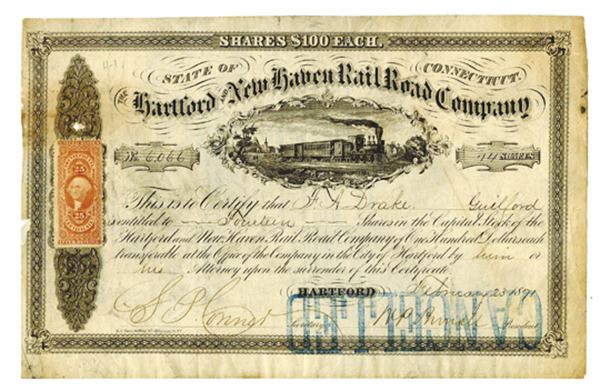 SHARES $100 EACH.
STATE OF CONNECTICUT.
THE Hartford and New Haven Rail Road Company
No. 6,066 14 SHARES
25
25 25
This is to Certify that F A Drake Guilford
is entitled to Fourteen Shares in the Capital Stock of the
Hartford and New Haven Rail Road Company of One Hundred Dollars each
transferable at the Office of the Company in the City of Hartford by him or
his Attorney upon the surrender of this Certificate.
HARTFORD February 23 1871
Secretary President
CANCELLED